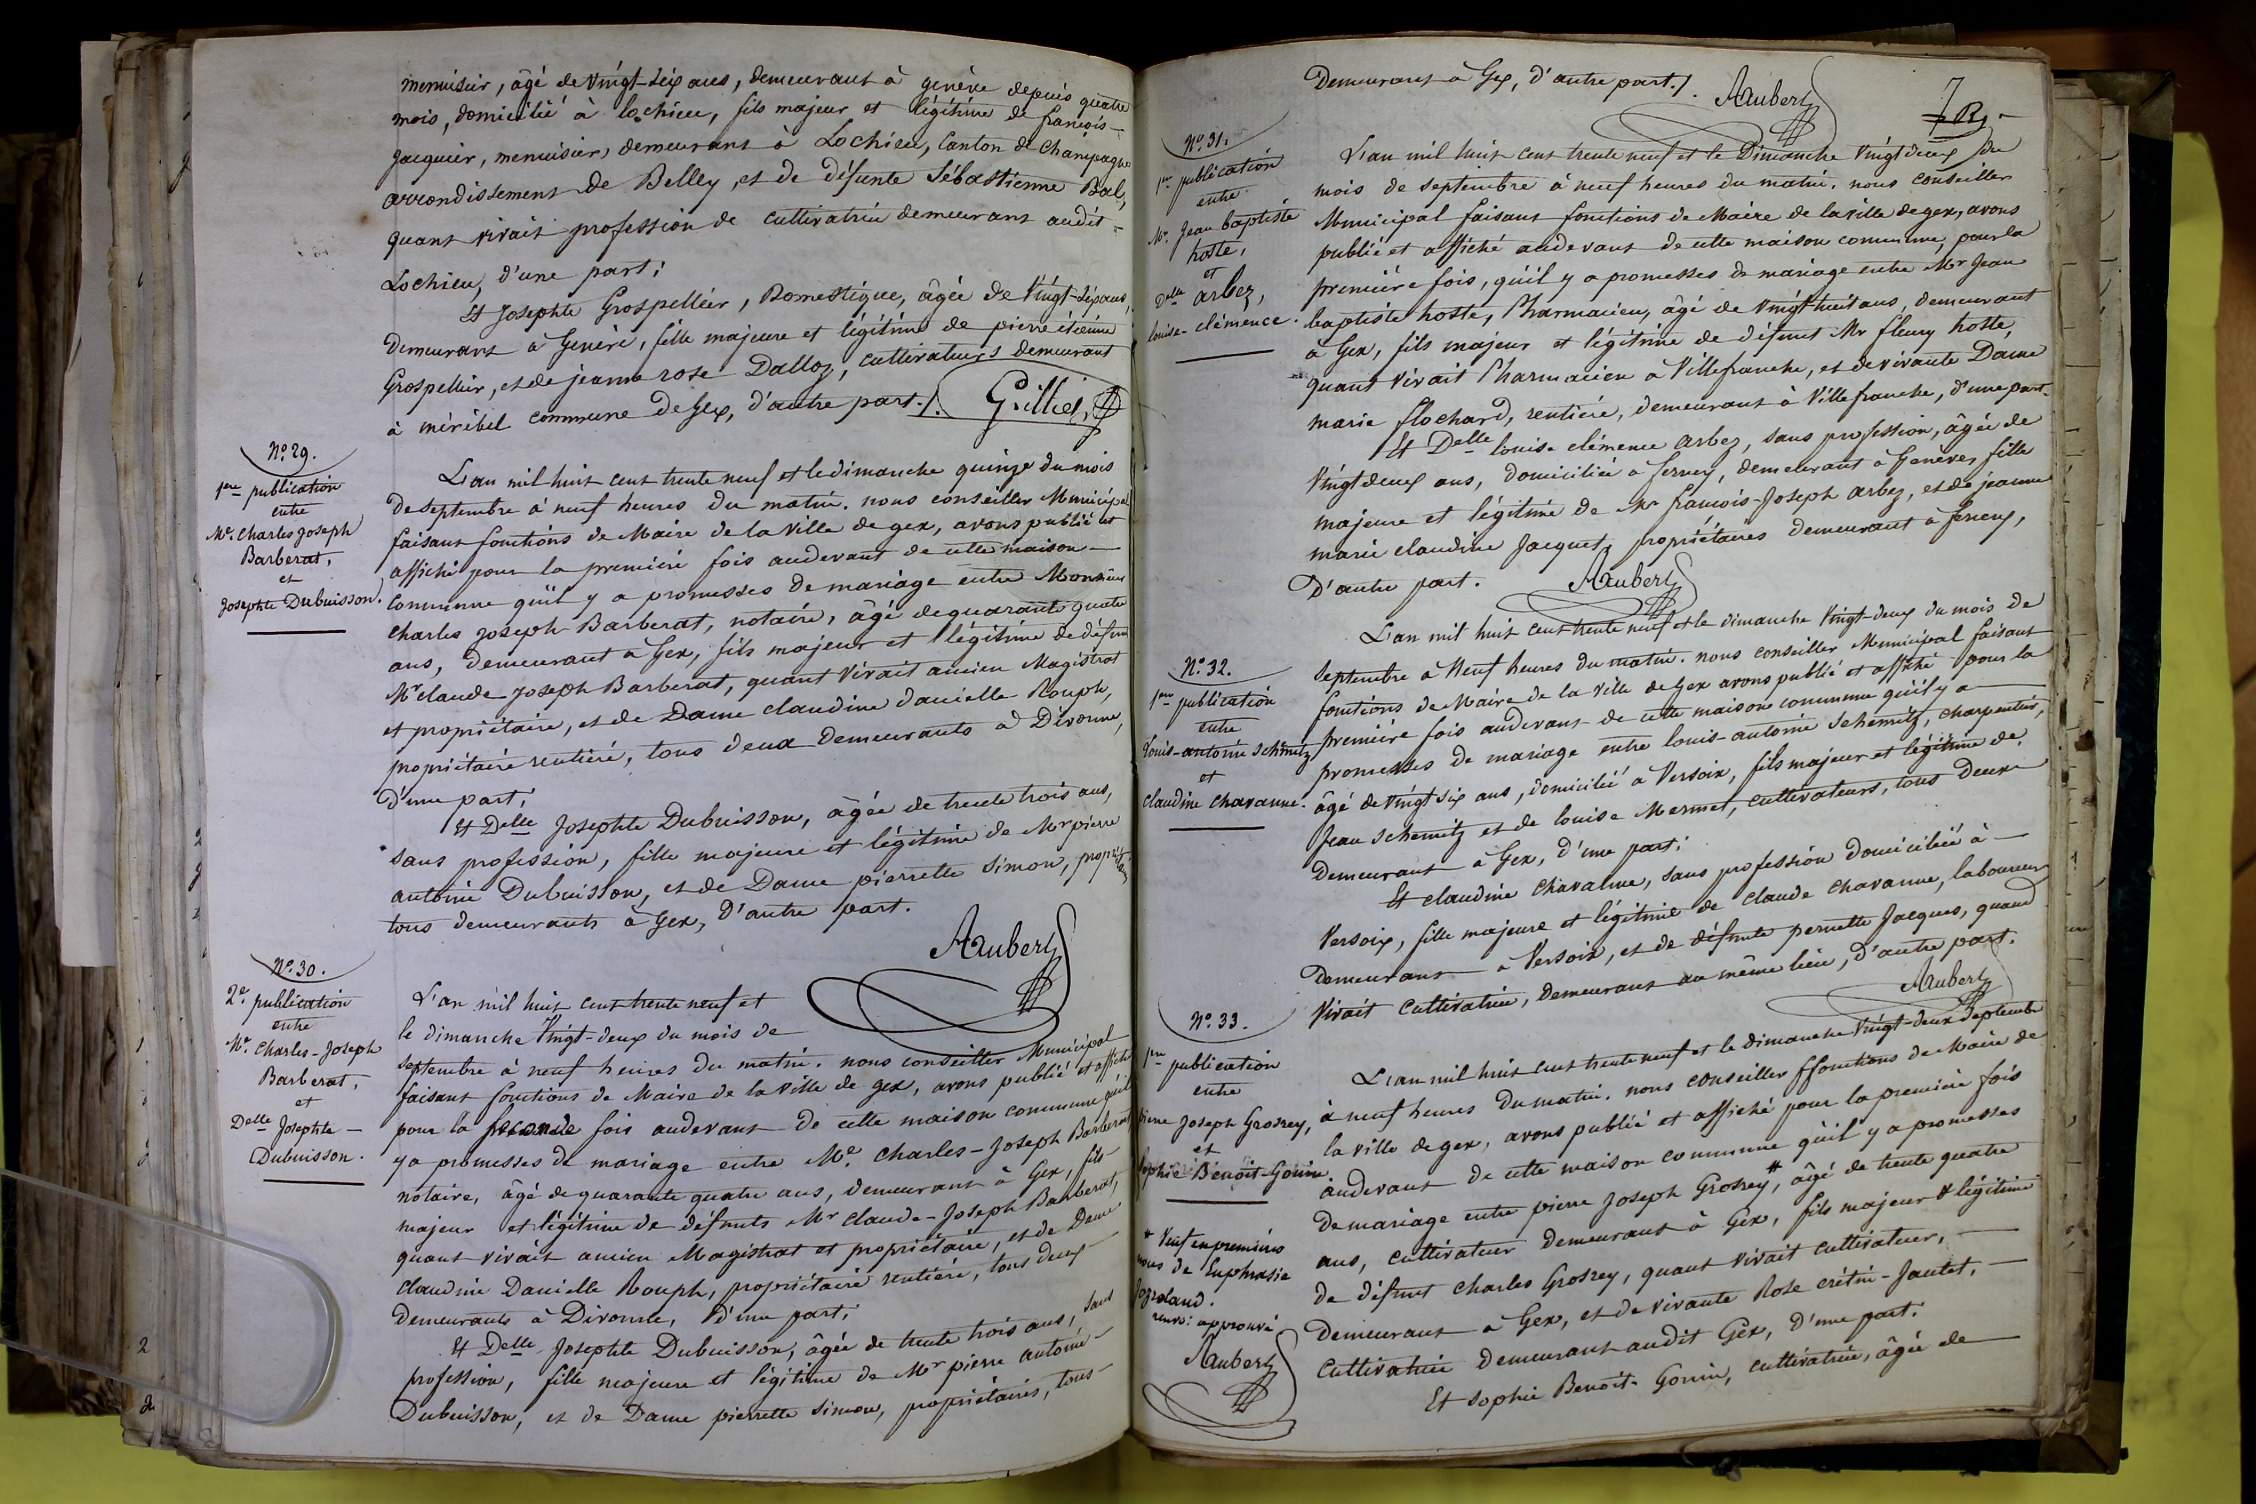 menuisier, âgé de vingt-six ans, demeurant à genève depuis quatre
mois, domicilié à lochieu, fils majeur et légitime de françois-
Jacquier, menuisier, demeurant à Lochieu, Canton de Champagne
arrondissement de Belley, et de défunte Sébastienne Bal,
quant vivait profession de cultivatrice demeurant audit-
Lochieu, d'une part;
Et Josephte Grospellier, Domestique, âgée de Vingt-six ans,
demeurant à Genève, fille majeure et légitime de pierre étienne
Grospellier, et de jeanne rose Dalloz, cultivateurs demeurant
à méribel commune de Gex, d'autre part./.
N.º 29.
1ere publication
entre
Mr. Charles Joseph
Barberat,
et
Josephte Dubuisson.
L'an mil huit cent trente neuf et le dimanche quinze du mois
de septembre à neuf heures du matin. nous conseiller Municipal
faisant fonctions de Maire de la Ville de gex, avons publié et
affiché pour la première fois audevant de cette maison
commune qu'il y a promesses de mariage entre Monsieur
Charles Joseph Barberat, notaire, âgé de quarante quatre
ans, demeurant à Gex, fils majeur et légitime de défunt
Mr claude Joseph Barberat, quant vivait ancien Magistrat
et propriétaire, et de Dame claudine danielle Rouph,
propriétaire rentière, tous deux demeurants à Divonne,
d'une part;
Et Delle Josephte Dubuisson, âgée de trente trois ans,
sans profession, fille majeure et légitime de Mr pierre
antoine Dubuisson, et de Dame pierrette Simon,
tous demeurants à Gex, d'autre part.
Aubert
N.º 30.
2e. publication
entre
Mr. Charles-Joseph
Barberat,
et
Delle Josephte
Dubuisson.
L'an mil huit cent trente neuf et
le dimanche Vingt-deux du mois de
septembre à neuf heures du matin. nous conseiller Municipal
faisant fonctions de Maire de la Ville de gex, avons publié et affiché
pour la seconde fois audevant de cette maison commune qu'il
y a promesses de mariage entre Mr. Charles-Joseph Barberat
notaire, âgé de quarante quatre ans, demeurant à Gex, fils
majeur et légitime de défunts Mr Claude-Joseph Barberat,
quant vivait ancien Magistrat et propriétaire, et de Dame
Claudine Danielle Rouph, propriétaire rentière, tous deux
demeurants à Divonne, d'une part;
Et Delle Josephte Dubuisson, âgée de trente trois ans, sans
profession, fille majeure et légitime de Mr pierre antoine
Dubuisson, et de Dame pierrette Simon, propriétaires, tous
Demeurant à Gex, d'autre part./.
Aubert
7
N.º 31.
1ere publication
entre
Mr. Jean baptiste
hoste,
et
Delle arbez,
louise-clémence.
L'an mil huit cent trente neuf et le Dimanche Vingt deux du
mois de septembre à neuf heures du matin. nous conseiller
Municipal faisant fonctions de Maire de la ville de gex, avons
publié et affiché audevant de cette maison commune, pour la
première fois, qu'il y a promesses de mariage entre Mr Jean
baptiste hoste, Pharmacien, âgé de vingt huit ans, demeurant
à Gex, fils majeur et légitime de défunt Mr fleury hoste,
quant vivait Pharmacien à Villefranche, et de vivante Dame
marie flochard, rentière, demeurant à Villefranche, d'une part.
Et Delle louise clémence arbez, sans profession, âgée de
Vingt deux ans, domiciliée à ferney, demeurant à Genève, fille
majeure et légitime de Mr françois-Joseph arbez, et de jeanne
marie claudine Jacquet, propriétaires demeurant à ferney,
D'autre part.
Aubert
N.º 32.
1ere publication
entre
Louis-antoine Schemitz
et
Claudine Chavanne.
L'an mil huit cent trente neuf et le dimanche Vingt-deux du mois de
septembre à Neuf heures du matin. nous conseiller Municipal faisant
fonctions de Maire de la Ville de Gex avons publié et affiché pour la
première fois audevant de cette maison commune qu'il y a
promesses de mariage entre louis-antoine Schemitz, charpentier,
âgé de vingt six ans, domicilié à Versoix, fils majeur et légitime de
Jean Schemitz et de louise Mermet, cultivateurs, tous deux
demeurant à Gex, d'une part;
Et claudine Chavanne, sans profession domiciliée à
Versoix, fille majeure et légitime de claude Chavanne, laboureur
demeurant à Versoix, et de défunte pernette Jacques, quand
vivait Cultivatrice, demeurant au même lieu, d'autre part.
Aubert
N.º 33.
1ere publication
entre
pierre Joseph Grosrey,
et
Sophie Benoit-Gonin.
L'an mil huit cent trente neuf et le dimanche Vingt-deux septembre
à neuf heures du matin. nous conseiller ffonctions de Maire de
la ville de gex, avons publié et affiché pour la première fois
audevant de cette maison commune qu'il y a promesses
de mariage entre pierre Joseph Grosrey, âgé de trente quatre
ans, cultivateur demeurant à Gex, fils majeur & légitime
de défunt Charles Grosrey, quant vivait cultivateur,
demeurant à Gex, et de vivante Rose crétin-Jautet,
cultivatrice demeurant audit Gex, d'une part.
Et Sophie Benoit-Gonin, cultivatrice, âgée de
Veuf en premières
noces de Euphrasie
renvoi approuvé
Aubert